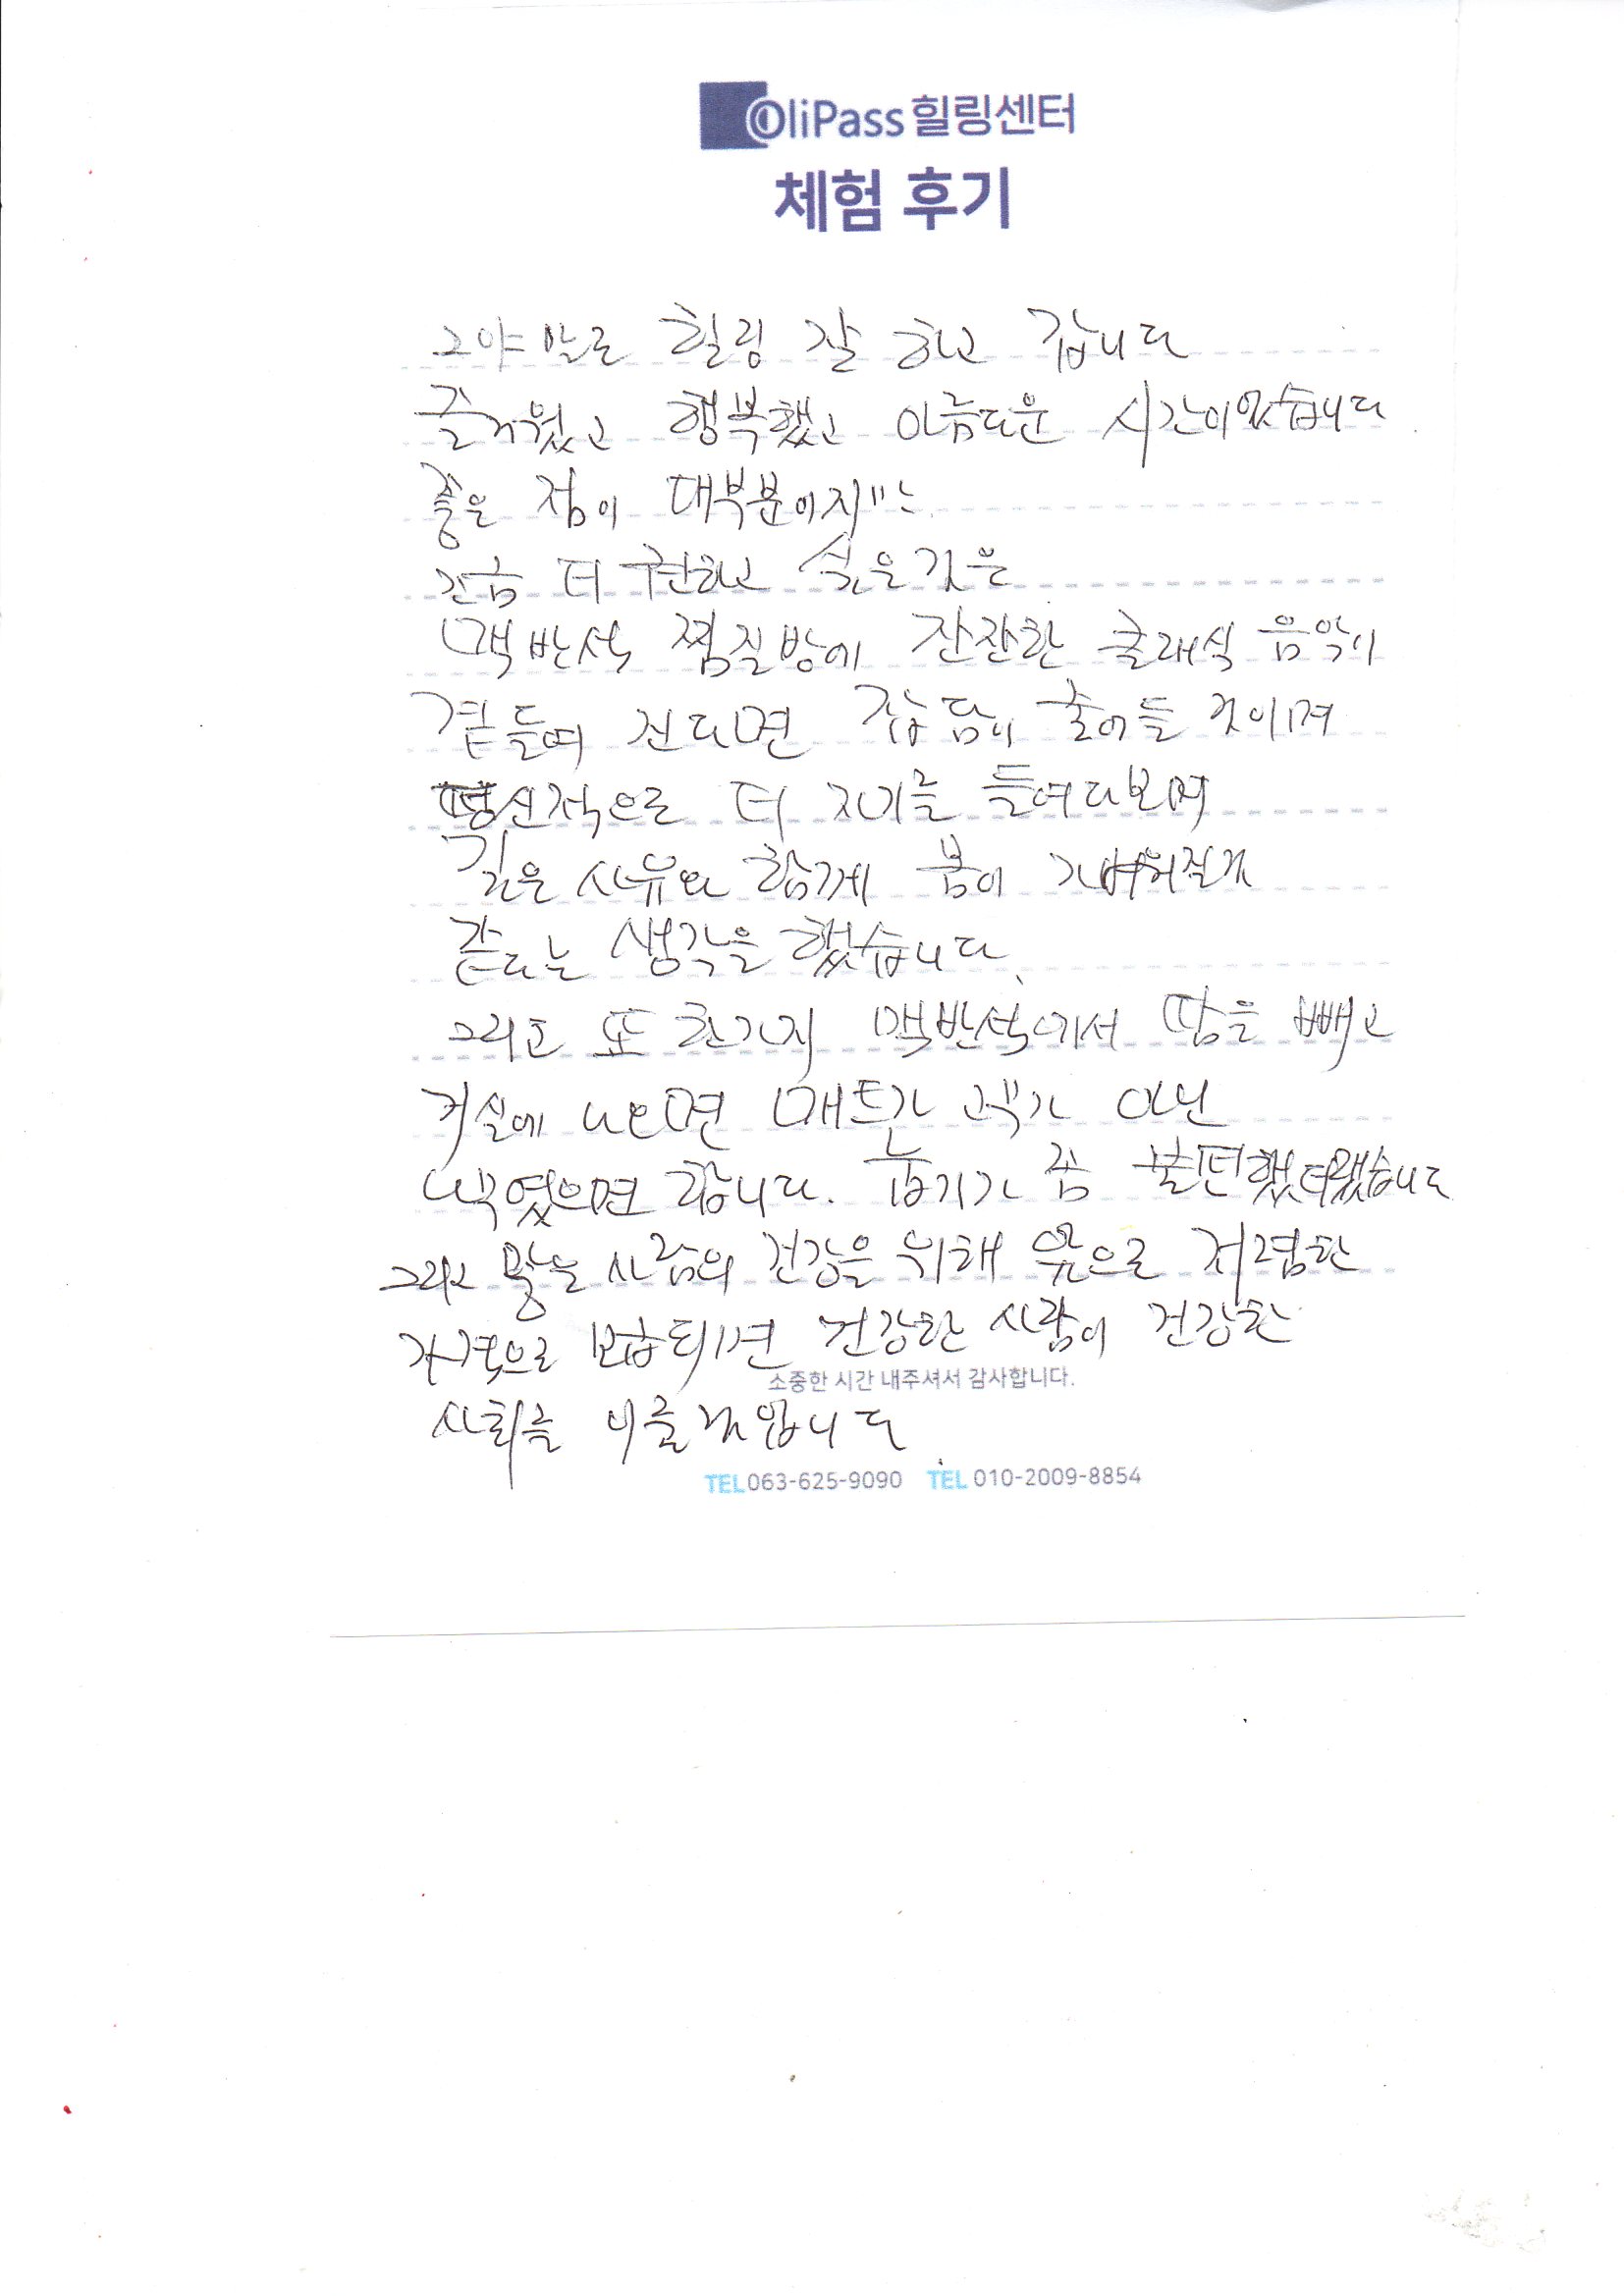 OliPass 힐링센터
체험 후기
그야말로 힐링 잘 하고 갑니다
즐거웠고 행복했고 아름다운 시간이었습니다
좋은 점이 대부분이지만
조금 더 권하고 싶은것은
맥반석 찜질방에 잔잔한 클래식 음악이
곁들여 진다면 잡담이 줄어들 것이며
정신적으로 더 자기를 들여다보며
깊은 사유와 함께 몸이 가벼워질것
같다는 생각을 했습니다.
그리고 또 한가지 맥반석에서 땀을 빼고
거실에 나오면 매트가 아닌
였으면 합니다. 습기가 좀 불편했습니다
그리고 많은 사람의 건강을 위해 앞으로 저렴한
가격으로 보급되면 건강한 사람이 건강한
소중한 시간 내주셔서 감사합니다.
사회를 이룰것입니다
TEL 063-625-9090 TEL 010-2009-8854